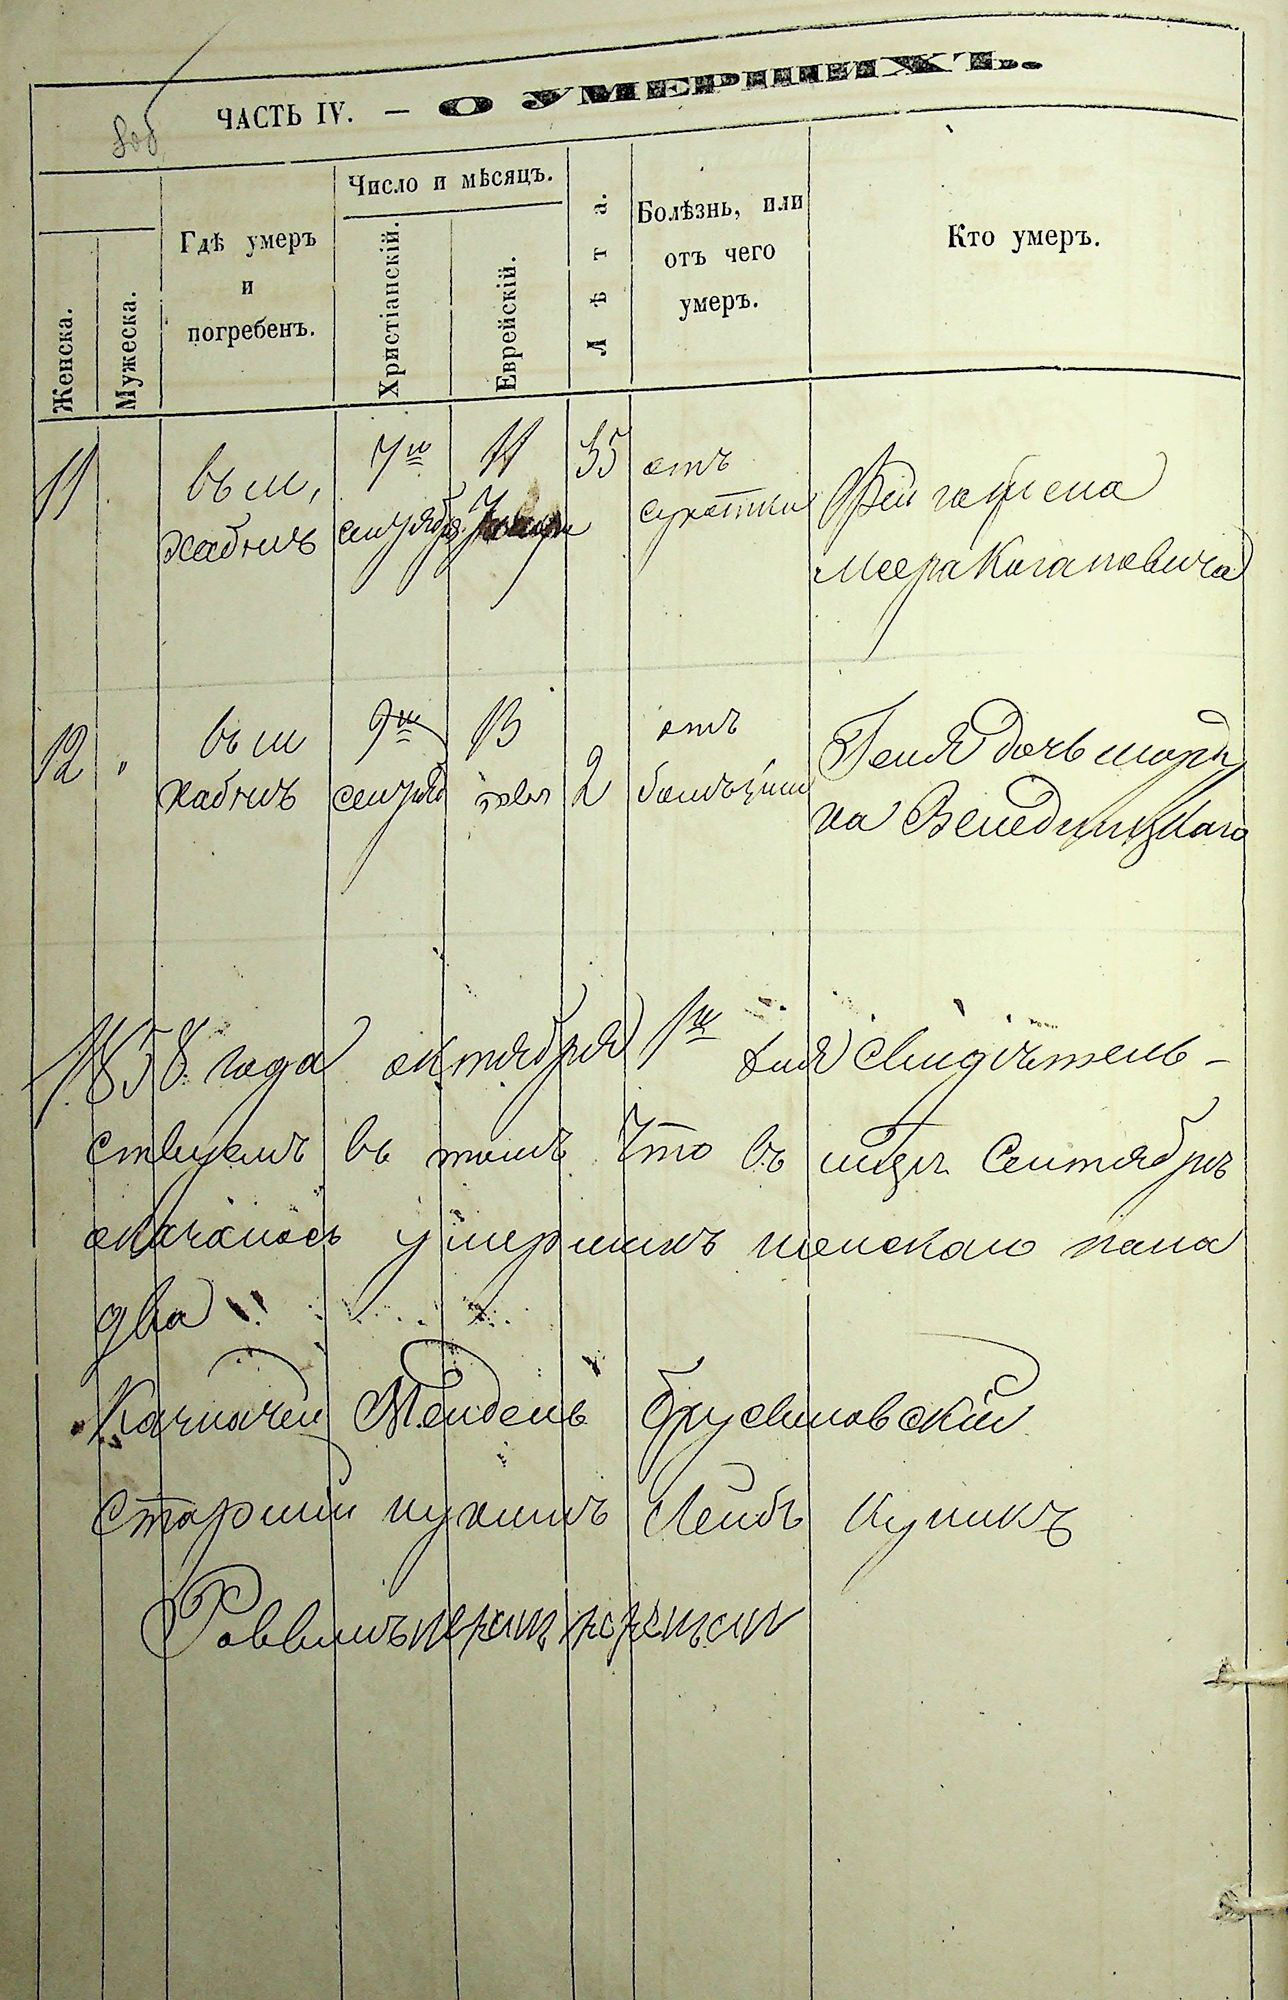 ЧАСТЬ IV. — О УМЕРШИХЪ.
Женска.
Мужеска.
Гдѣ умеръ
и
погребенъ.
Число и мѣсяцъ.
Христіанскій.
Еврейскій.
Лѣта.
Болѣзнь, или
отъ чего
умеръ.
Кто умеръ.
11
въ м,
Хабнѣ
7го
сентября
11
35
отъ
сухотки
Фейга жена
Меера Кагановича
12 "
въ м
Хабнѣ
9го
сентяб
13
2
отъ
Геня дочь Морд
ка Венедицкаго
1858 года октября 1го дня Свидѣтель-
ствуемъ въ томъ Что въ мцѣ Сентябрѣ
оказалось умершихъ женскаго пола
два
Казначей Мендель Брусиловскій
Старший Лейбъ Куникъ
Раввинъ